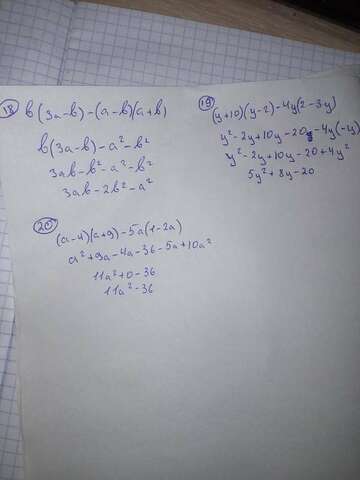 18 b(3a-b)-(a-b)(a+b)
b(3a-b)-a²-b²
3ab-b²-a²-b²
3ab-2b²-a²
19 (y+10)(y-2)-4y(2-3y)
y²-2y+10y-20-4y(-y)
y²-2y+10y-20+4y²
5y²+8y-20
20 (a-4)(a+9)-5a(1-2a)
a²+9a-4a-36-5a+10a²
11a²+0-36
11a²-36